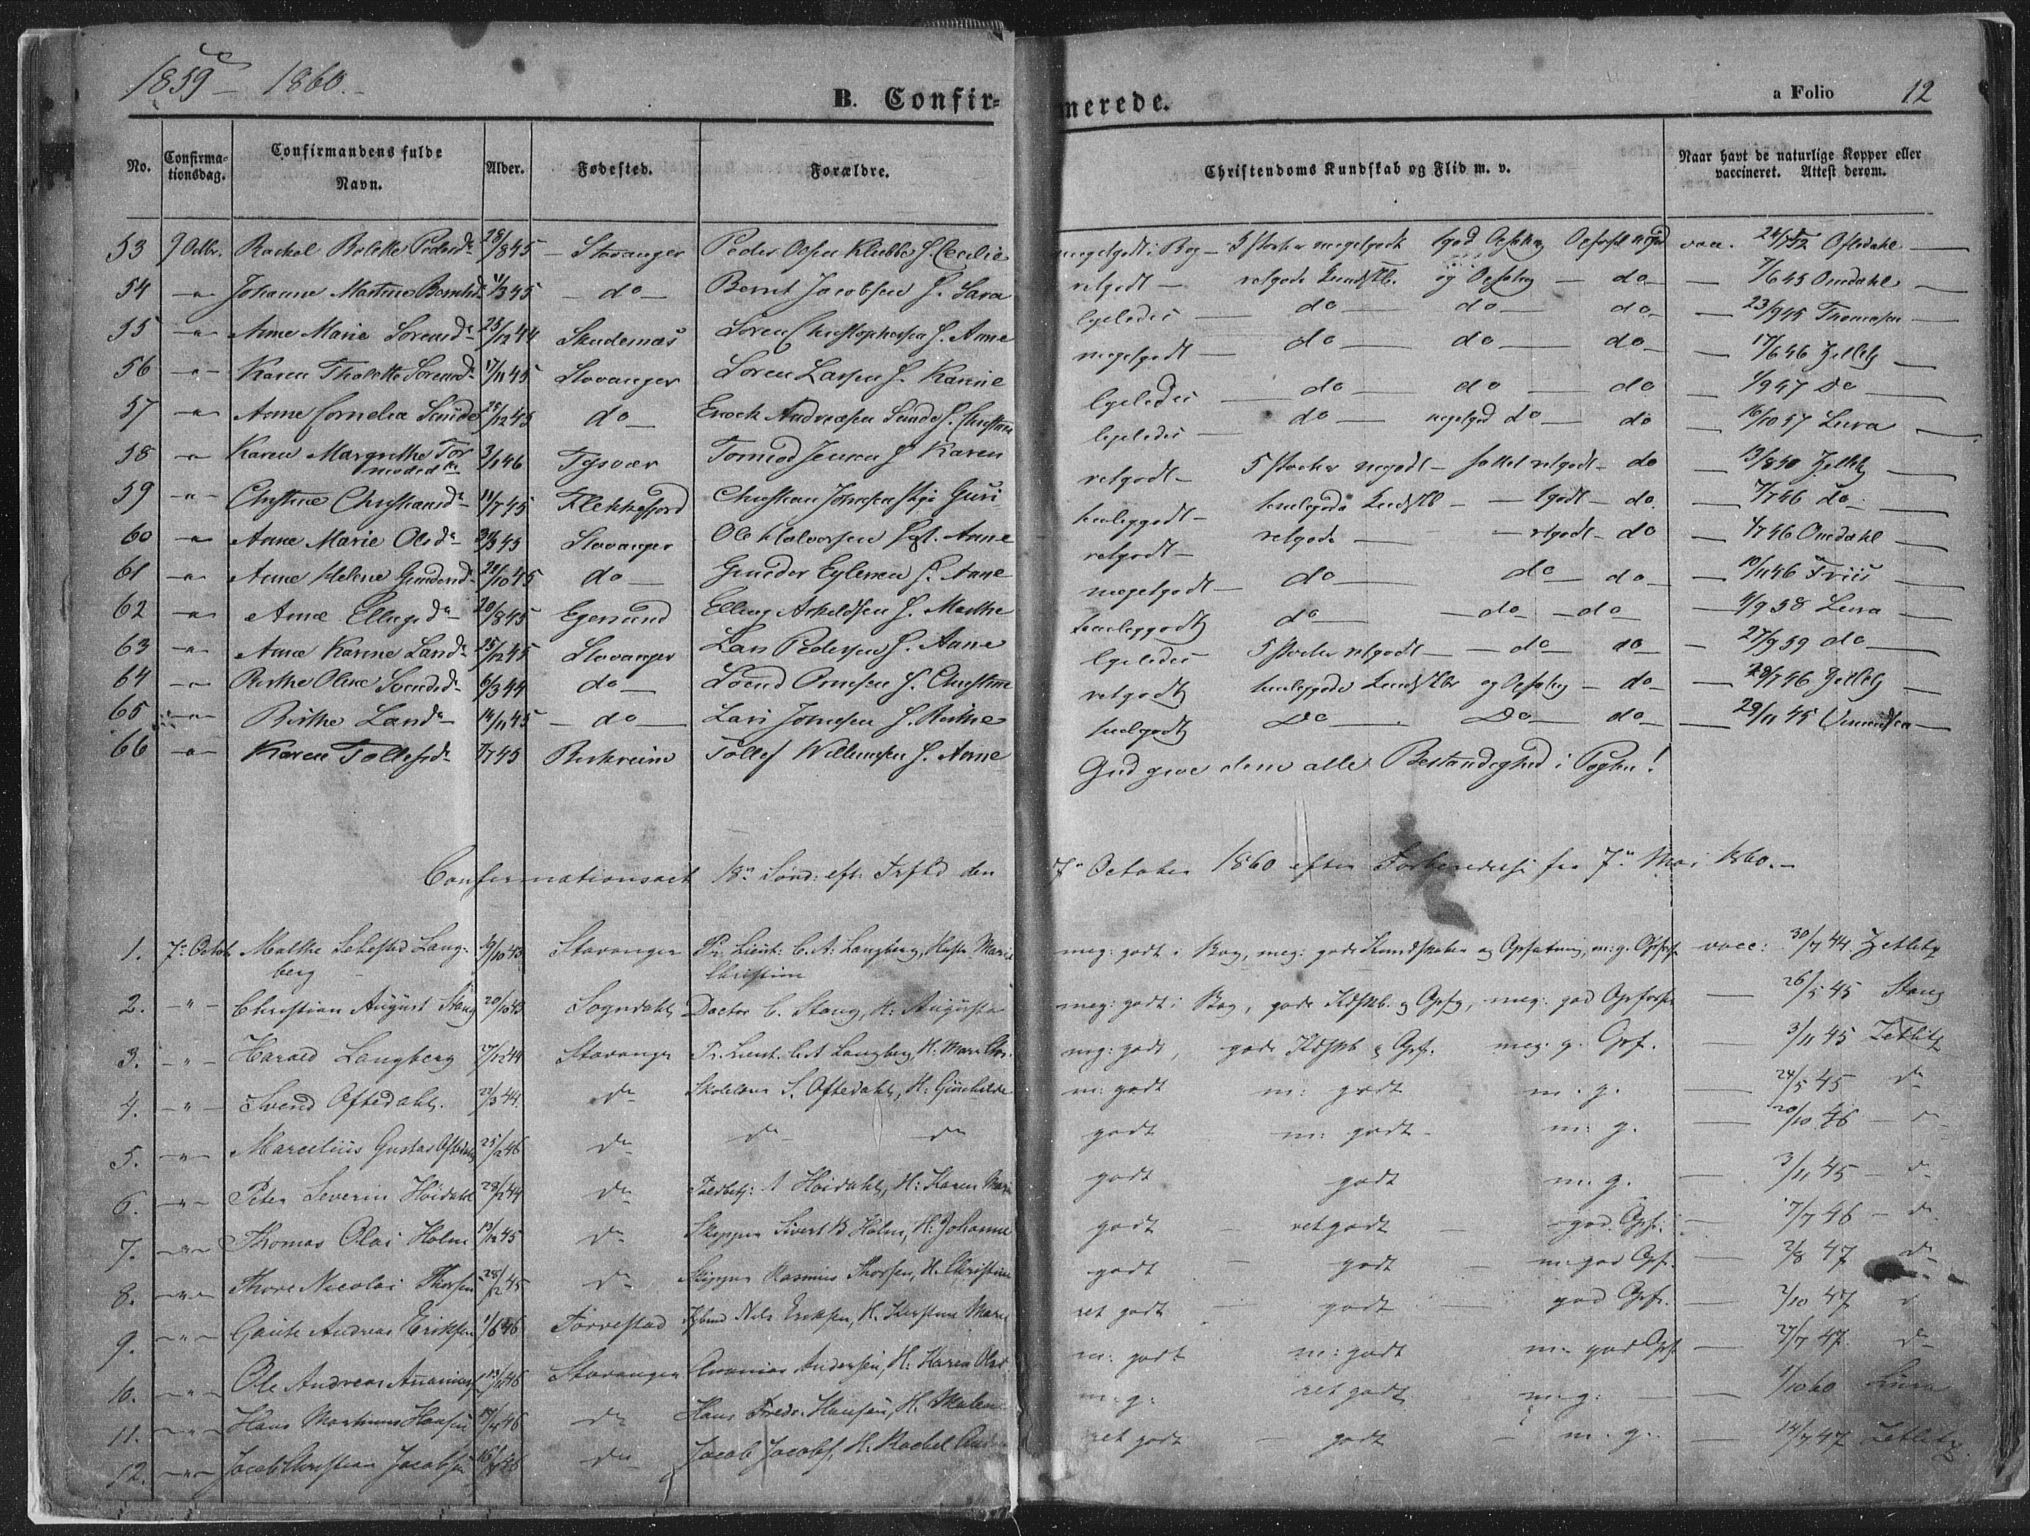 1859 – 1860.
B. Confirmerede.
a Folio 12
No.
Confirmationsdag.
Confirmandens fulde Navn.
Alder.
Fødested.
Forældre.
Christendoms Kundskab og Flid m. v.
Naar havt de naturlige Kopper eller vaccineret. Attest derom.
53 7 Octbr. Rachel Bolette Pedersd. 28/8 45 – Stavanger Peder Olsen Klubbe H. Cecilie megetgodt i Bog – vacc. Oftedahl
54 –"– Johanne Martine Berntsd. 11/3 45 – do – Bernt Jacobsen H. Sara retgodt – retgode Kundskb. – do – 7/6 45 Omdahl
55 –"– Anne Marie Sørensd. 23/12 44 Skudesnæs Søren Christophersen H. Anne ligeledes – do – do – do – 23/9 45 Thomsen
56 –"– Karen Tholette Sørensd. 17/11 45 Stavanger Søren Larsen H. Karine megetgodt – do – do – do – 17/6 46 Zetlitz
57 –"– Anne Cornelia Sunde 25/12 45 do – Enoch Andreasen Sunde H. Christine ligeledes – do – do – do – 1/9 47 Do
58 –"– Karen Margrethe Tormodsd. 3/1 46 Tysvær Tormod Jensen H. Karen ligeledes – do – do – do 16/10 57 Lura
59 –"– Christine Christiansd. 11/7 45 Flekkefjord Christian Guri retgodt – 5 Parter megodt – retgodt – do – 13/8 50 Zetlitz
60 –"– Anne Marie Olsd. 45 Stavanger Ole Halvorsen Anne temeliggodt – temeligode Kundskb – godt – do – 7/7 46 do
61 –"– Anne Helene Gundersd. 22/10 45 do – Gunder Eylersen H. Anne retgodt – retgode – retgodt – do – 1/7 46 Omdahl
62 –"– Anne Ellingsd. 20/8 45 Egersund Elling Askeldsen H. Marthe megetgodt – do – do – do – 10/11 46 Friis
63 –"– Anne Karine Larsd. 25/12 45 Stavanger Lars Pedersen H. Anne temeliggodt – do – do – do – 4/9 58 Lura
64 –"– Birthe Oline Svendsd. 6/3 44 do – Svend Ornesen H. Christine ligeledes – 5 Parter retgodt – do – do – 27/9 59 do
65 –"– Birthe Larsd. 14/11 45 – do – Lars H. Birthe retgodt – temeligode Kundskb – do – 28/7 46 Zetlitz
66 –"– Karen Tollefsd. 45 Birkreim Tollef Willumsen H. Anne temeligodt – Do – Do – do – 29/11 45
Gud give dem alle Bestandighed i Pagten!
Confirmationsact 18de Sønd: eft: Trftd den 7de October 1860 efter Forberedelse fra 7de Mai 1860. –
1. 7de Octob. Malthe Sehested Langberg 9/10 43 Stavanger Pr. Lieut: C. A. Langberg, Hustr. Marie Christine meg: godt i Bog, meg: gode Kundskaber og Opfatning, m: g. Opførs. vacc: 30/7 44 Zetlitz
2. –"– Christian August Stang 20/10 43 Sogndahl Doctor C. Stang, H: Augusta meg: godt i Bog, gode Kdskb. & Opfg, meg: god Opførsel – 26/5 45 Stang
3. –"– Harald Langberg 27/12 44 Stavanger Pr. Lieut. C. A. Langberg, H: Marie Chr. meg: godt, gode Kdskb & Opf. meg: g. Opf. – 3/11 45 Zetlitz
4. –"– Svend Oftedahl. 22/3 44. do Skolelær S. Oftedahl, H: Gunhilde m: godt m: godt m. g. – 24/5 45 do
5. –"– Marcelius Gustav Oftedahl 25/2 46 do do do godt m: godt – m: g. – 20/10 46 – do
6. –"– Peter Severin Høidahl 28/12 44 do Toldbetj: A Høidahl, H: Karen Marie godt godt m. g. – 3/11 45 – do
7. –"– Thomas Olai Holm 13/12 45 do Skipper Sivert B Holm, H: Johanne godt – retgodt – god. Opf. – 7/7 46 – do
8. –"– Thore Nicolai Thorsen 28/12 45 do Skipper Rasmus Thorsen, H. Christine godt – godt m: god Opf. – 2/8 47 do
9. –"– Gaute Andreas Eriksen 1/6 46 Torvestad Nils Eriksen, H. Kirstine Marie ret godt – godt – god Opf. – 2/10 47 do
10. –"– Ole Andreas Ananias 13/11 46 Stavanger Ananias Andersen, H: Karen Olsd m: godt m: godt m: god Opf. – 27/7 47. do
11. –"– Hans Martinus Hansen 46 do Hans Fredr. Hansen, H. Malene m: g. ret godt m: g. – 1/10 60 Lura
12. –"– Jacob Christian Jacobsen 46 do Jacob Jacobs, H. Rachel ret godt – godt – m. g. – 14/7 47 Zetlitz